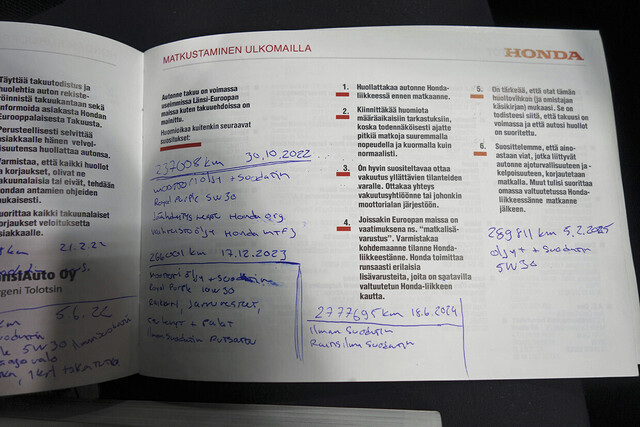 Täyttää takuutodistus ja
huolehtia auton rekiste-
röinnistä takuukantaan sekä
informoida asiakasta Hondan
Eurooppalaisesta Takuusta.
Perusteellisesti selvittää
asiakkaalle hänen velvol-
lisuutensa huollattaa autonsa.
Varmistaa, että kaikki huollot
ja korjaukset, olivat ne
takuunalaisia tai eivät, tehdään
Hondan antamien ohjeiden
mukaisesti.
Suorittaa kaikki takuunalaiset
korjaukset veloituksetta
asiakkaalle.
km 21.2.22
nstAuto Oy
geni Tolotsin
km 5.6.22
5W30
MATKUSTAMINEN ULKOMAILLA
HONDA
Autonne takuu on voimassa
useimmissa Länsi-Euroopan
maissa kuten takuuehdoissa on
mainittu.
Huomioikaa kuitenkin seuraavat
suositukset:
237008 km 30.10.2022
moottoriöljy + suodatin
Royal Purple 5W30
Jäähdytysneste Honda org.
Vaihteistoöljy Honda MTF3
266001 km 17.12.2023
moottori öljy + suodatin
Royal Purple 10W30
+ Palat
Ilmansuodatin
1. Huollattakaa autonne Honda-
liikkeessä ennen matkaanne.
2. Kiinnittäkää huomiota
määräaikaisiin tarkastuksiin,
koska todennäköisesti ajatte
pitkiä matkoja suuremmalla
nopeudella ja kuormalla kuin
normaalisti.
3. On hyvin suositeltavaa ottaa
vakuutus yllättävien tilanteiden
varalle. Ottakaa yhteys
vakuutusyhtiöönne tai johonkin
moottorialan järjestöön.
4. Joissakin Euroopan maissa on
vaatimuksena ns. "matkalisä-
varustus". Varmistakaa
kohdemaanne tilanne Honda-
liikkeestänne. Honda toimittaa
runsaasti erilaisia
lisävarusteita, joita on saatavilla
valtuutetun Honda-liikkeen
kautta.
277695 km 18.6.2024
Ilman suodatin
Raitisilma suodatin
5. On tärkeää, että otat tämän
huoltovihkon (ja omistajan
käsikirjan) mukaasi. Se on
todisteesi siitä, että takuusi on
voimassa ja että autosi huollot
on suoritettu.
6. Suosittelemme, että aino-
astaan viat, jotka liittyvät
autonne ajoturvallisuuteen ja
-kelpoisuuteen, korjautetaan
matkalla. Muut tulisi suorittaa
omassa valtuutetussa Honda-
liikkeessänne matkanne
jälkeen.
289811 km 5.2.2025
öljyt + suodatin
5W30